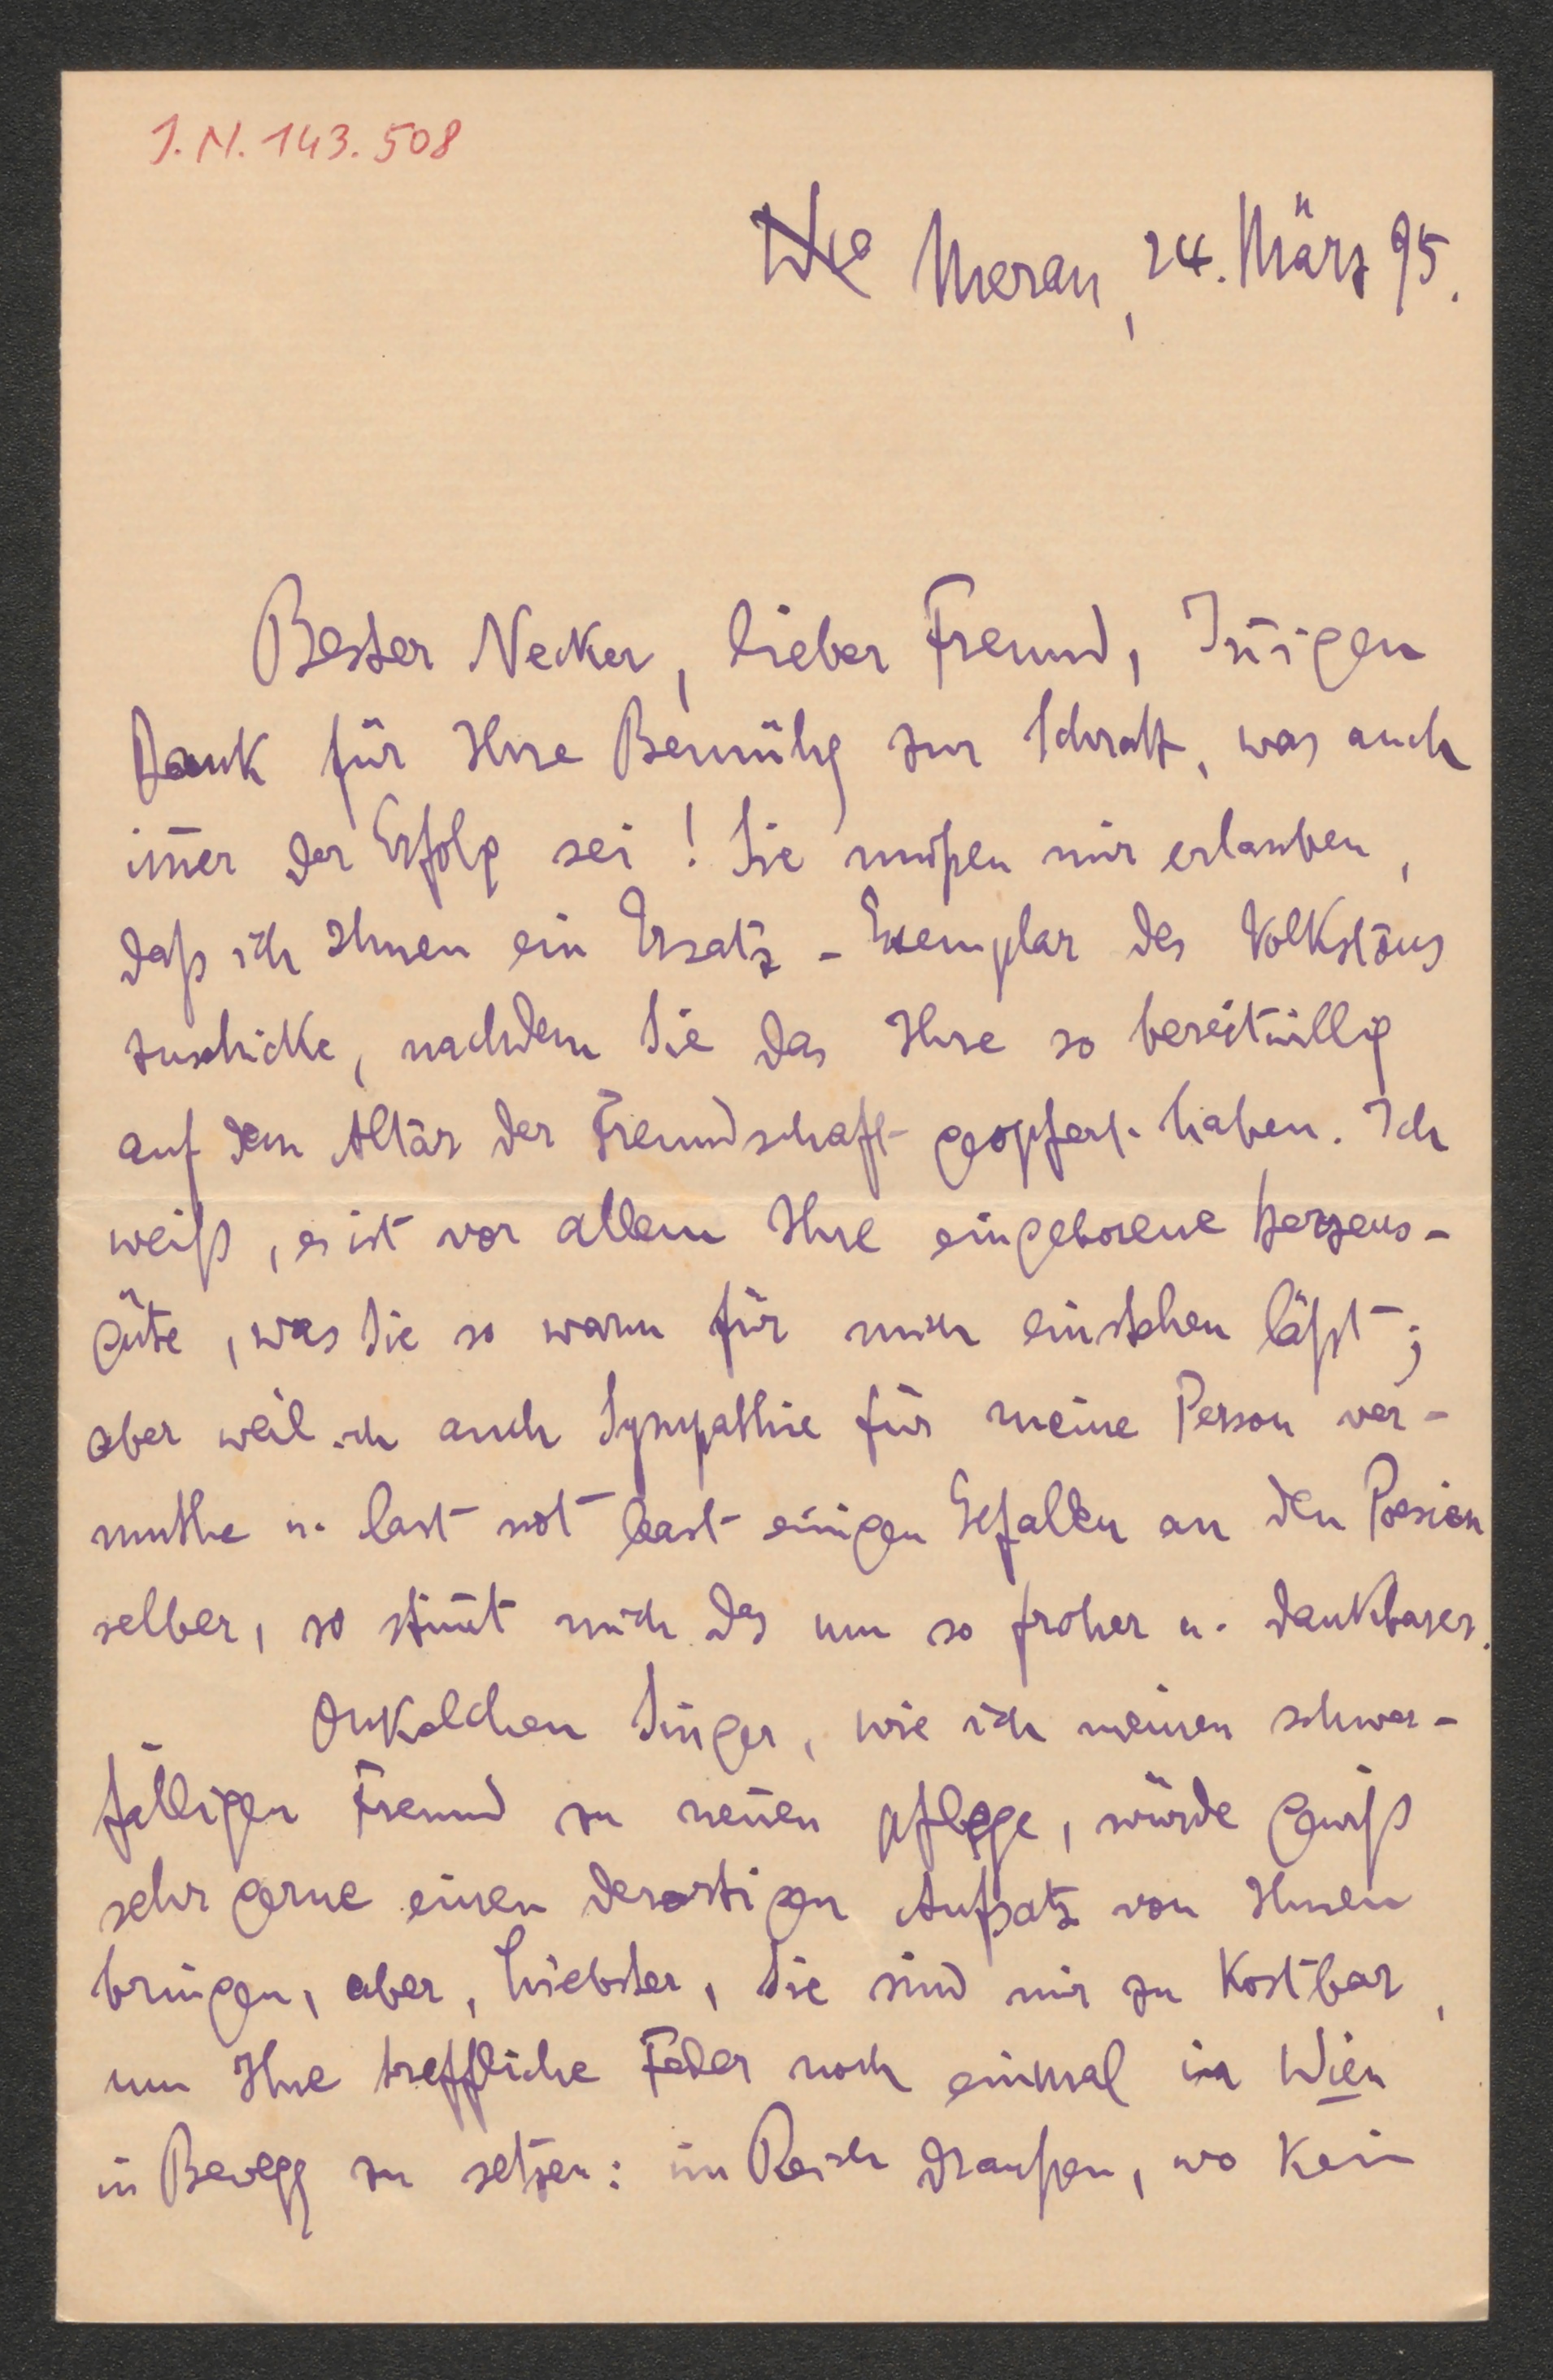 J.N. 143.508
Wie Meran, 24. März 95.
Bester Necker, lieber Freund, Iñigen
Dank für Ihre Bemühg zur Schratt, was auch
im̄er der Erfolg sei! Sie müßen mir erlauben,
daß ich Ihnen ein Ersatz-Exemplar des Volkstons
zuschicke, nachdem Sie das Ihre so bereitwillig
auf dem Altar der Freundschaft geopfert haben. Ich
weiß, es ist vor allem Ihre eingeborene Herzens-
güte, was Sie so warm für mich einstehen läßt;
aber weil ich auch Sympathie für meine Person ver-
muthe u. last not least einigen Gefallen an den Poesien
selber, so stim̄t mich das um so froher u. dankbarer.
Onkelchen Singer, wie ich meinen schwer-
fälligen Freund zu neñen pflege, würde gewiß
sehr gerne einen derartigen Aufsatz von Ihnen
bringen, aber, Liebster, Sie sind mir zu kostbar,
um Ihre treffliche Feder noch einmal in Wien
in Bewegg zu setzen: im Reich draußen, wo kein